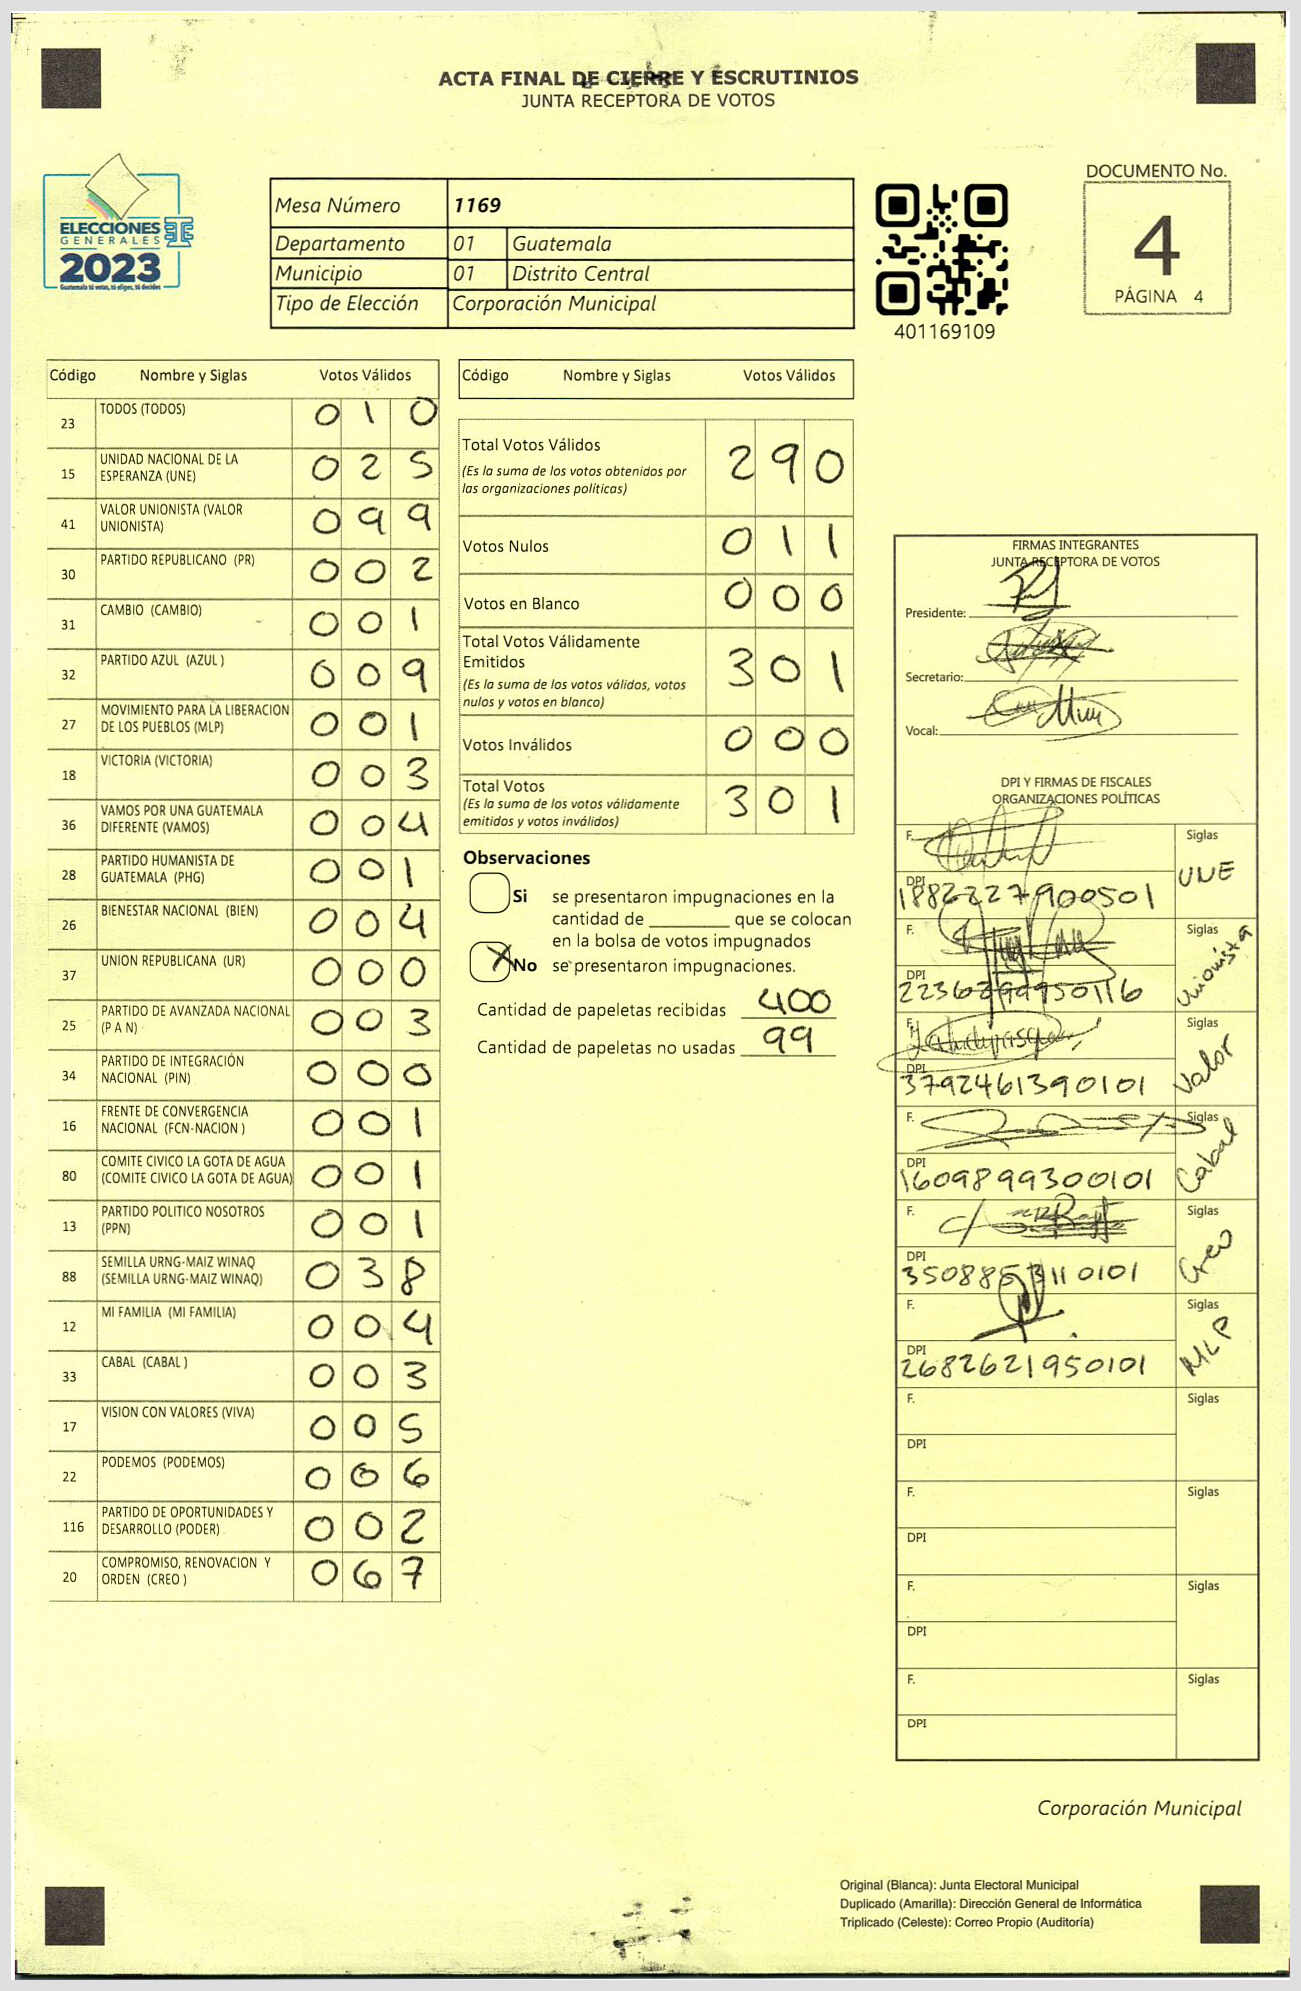 ACTA FINAL DE CIERRE Y ESCRUTINIOS
JUNTA RECEPTORA DE VOTOS
ELECCIONES
GENERALES
2023
Guatemala tú votas, tú eliges, tú decides
Mesa Número 1169
Departamento 01 Guatemala
Municipio 01 Distrito Central
Tipo de Elección Corporación Municipal
401169109
DOCUMENTO No.
4
PÁGINA 4
Código Nombre y Siglas Votos Válidos
23 TODOS (TODOS) 0 1 0
15 UNIDAD NACIONAL DE LA
ESPERANZA (UNE) 0 2 5
41 VALOR UNIONISTA (VALOR
UNIONISTA) 0 9 9
30 PARTIDO REPUBLICANO (PR) 0 0 2
31 CAMBIO (CAMBIO) 0 0 1
32 PARTIDO AZUL (AZUL ) 0 0 9
27 MOVIMIENTO PARA LA LIBERACION
DE LOS PUEBLOS (MLP) 0 0 1
18 VICTORIA (VICTORIA) 0 0 3
36 VAMOS POR UNA GUATEMALA
DIFERENTE (VAMOS) 0 0 4
28 PARTIDO HUMANISTA DE
GUATEMALA (PHG) 0 0 1
26 BIENESTAR NACIONAL (BIEN) 0 0 4
37 UNION REPUBLICANA (UR) 0 0 0
25 PARTIDO DE AVANZADA NACIONAL
(P A N) 0 0 3
34 PARTIDO DE INTEGRACIÓN
NACIONAL (PIN) 0 0 0
16 FRENTE DE CONVERGENCIA
NACIONAL (FCN-NACION ) 0 0 1
80 COMITE CIVICO LA GOTA DE AGUA
(COMITE CIVICO LA GOTA DE AGUA) 0 0 1
13 PARTIDO POLITICO NOSOTROS
(PPN) 0 0 1
88 SEMILLA URNG-MAIZ WINAQ
(SEMILLA URNG-MAIZ WINAQ) 0 3 8
12 MI FAMILIA (MI FAMILIA) 0 0 4
33 CABAL (CABAL ) 0 0 3
17 VISION CON VALORES (VIVA) 0 0 5
22 PODEMOS (PODEMOS) 0 0 6
116 PARTIDO DE OPORTUNIDADES Y
DESARROLLO (PODER) 0 0 2
20 COMPROMISO, RENOVACION Y
ORDEN (CREO ) 0 6 7
Código Nombre y Siglas Votos Válidos
Total Votos Válidos 2 9 0
(Es la suma de los votos obtenidos por
las organizaciones políticas)
Votos Nulos 0 1 1
Votos en Blanco 0 0 0
Total Votos Válidamente
Emitidos 3 0 1
(Es la suma de los votos válidos, votos
nulos y votos en blanco)
Votos Inválidos 0 0 0
Total Votos 3 0 1
(Es la suma de los votos válidamente
emitidos y votos inválidos)
Observaciones
Si se presentaron impugnaciones en la
cantidad de ________ que se colocan
en la bolsa de votos impugnados
X No se presentaron impugnaciones.
Cantidad de papeletas recibidas 400
Cantidad de papeletas no usadas 99
FIRMAS INTEGRANTES
JUNTA RECEPTORA DE VOTOS
Presidente:
Secretario:
Vocal:
DPI Y FIRMAS DE FISCALES
ORGANIZACIONES POLÍTICAS
F. Siglas
UNE
DPI
1882227900501
F. Siglas
Unionista
DPI
F. Siglas
Valor
DPI
3792461390101
F. Siglas
Cabal
DPI
1609899300101
F. Siglas
Creo
DPI
F. Siglas
MLP
DPI
2682621950101
F. Siglas
DPI
F. Siglas
DPI
F. Siglas
DPI
F. Siglas
DPI
Corporación Municipal
Original (Blanca): Junta Electoral Municipal
Duplicado (Amarilla): Dirección General de Informática
Triplicado (Celeste): Correo Propio (Auditoría)